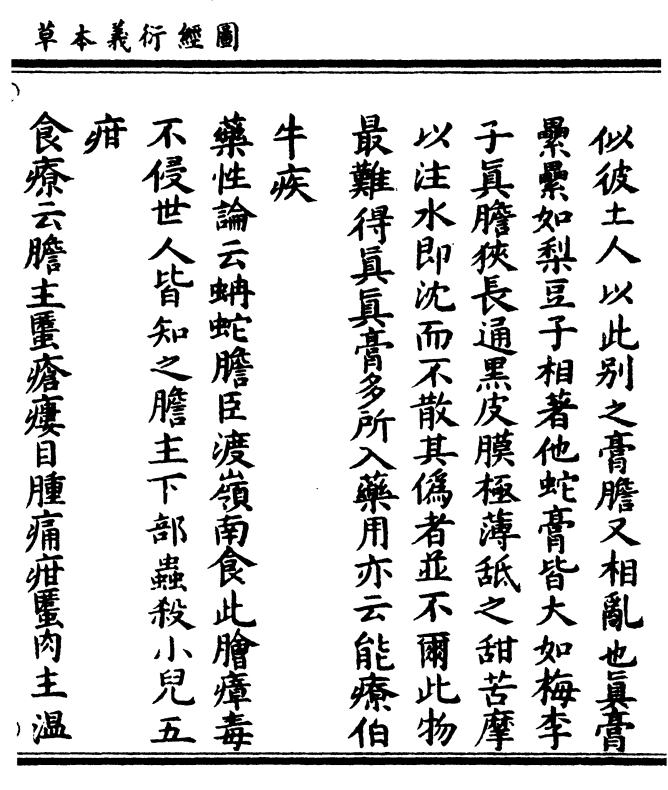 圖經衍義本草
似彼土人以此别之膏膽又相亂也眞膏
纍纍如梨豆子相著他蛇膏皆大如梅李
子眞膽狹長通黑皮膜極薄舐之甜苦摩
以注水即沈而不散其僞者並不爾此物
最難得眞眞膏多所入藥用亦云能療伯
牛疾
藥性論云蚺蛇膽臣渡嶺南食此膾瘴毒
不侵世人皆知之膽主下部蟲殺小兒五
疳
食療云膽主䘌瘡瘻目腫痛疳䘌肉主温